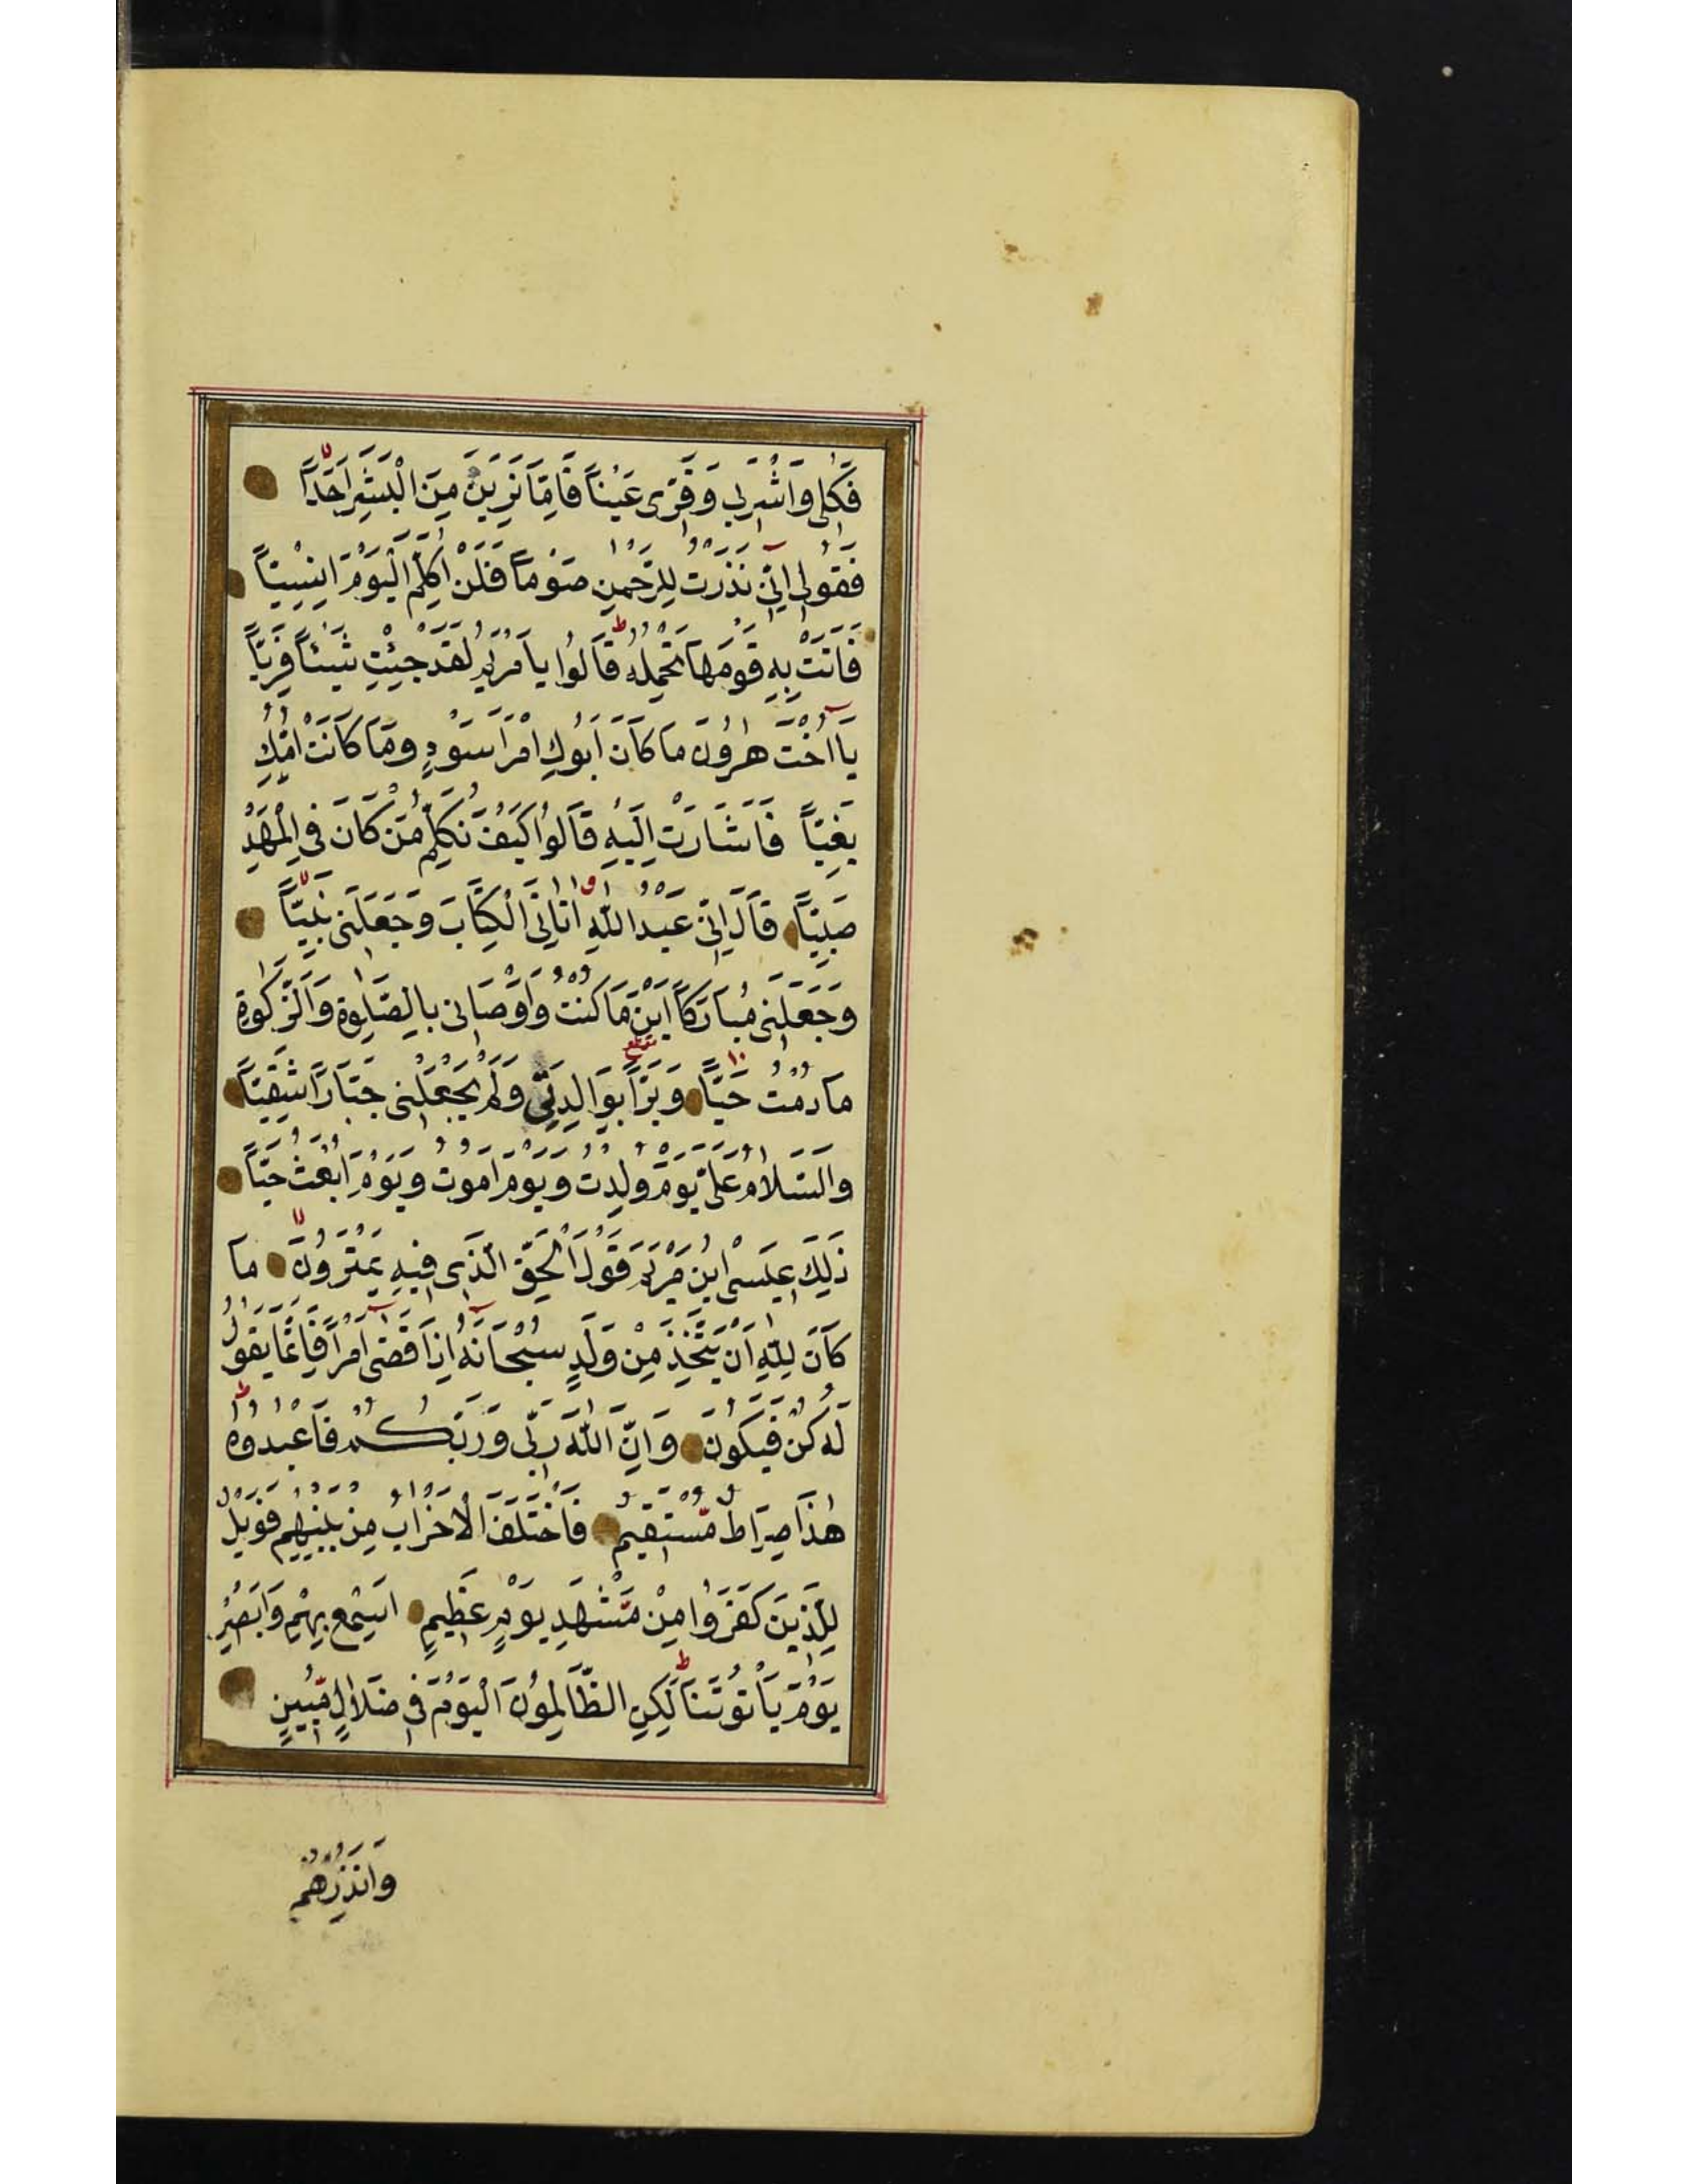 فَكُلِي وَاشْرَبِي وَقَرِّي عَيْنًا فَاِمَّا تَرَيِنَّ مِنَ الْبَشَرِ اَحَدًا
فَقُولِي اِنِّي نَذَرْتُ لِلرَّحْمٰنِ صَوْمًا فَلَنْ اُكَلِّمَ الْيَوْمَ اِنْسِيًّا
فَاَتَتْ بِهِ قَوْمَهَا تَحْمِلُهُ قَالُوا يَا مَرْيَمُ لَقَدْ جِئْتِ شَيْئًا فَرِيًّا
يَا اُخْتَ هٰرُونَ مَا كَانَ اَبُوكِ امْرَاَ سَوْءٍ وَمَا كَانَتْ اُمُّكِ
بَغِيًّا فَاَشَارَتْ اِلَيْهِ قَالُوا كَيْفَ نُكَلِّمُ مَنْ كَانَ فِي الْمَهْدِ
صَبِيًّا قَالَ اِنِّي عَبْدُ اللّٰهِ اٰتَانِيَ الْكِتَابَ وَجَعَلَنِي نَبِيًّا
وَجَعَلَنِي مُبَارَكًا اَيْنَ مَا كُنْتُ وَاَوْصَانِي بِالصَّلٰوةِ وَالزَّكٰوةِ
مَا دُمْتُ حَيًّا وَبَرًّا بِوَالِدَتِي وَلَمْ يَجْعَلْنِي جَبَّارًا شَقِيًّا
وَالسَّلَامُ عَلَيَّ يَوْمَ وُلِدْتُ وَيَوْمَ اَمُوتُ وَيَوْمَ اُبْعَثُ حَيًّا
ذٰلِكَ عِيسَى ابْنُ مَرْيَمَ قَوْلَ الْحَقِّ الَّذِي فِيهِ يَمْتَرُونَ مَا
كَانَ لِلّٰهِ اَنْ يَتَّخِذَ مِنْ وَلَدٍ سُبْحَانَهُ اِذَا قَضٰى اَمْرًا فَاِنَّمَا يَقُولُ
لَهُ كُنْ فَيَكُونُ وَاِنَّ اللّٰهَ رَبِّي وَرَبُّكُمْ فَاعْبُدُوهُ
هٰذَا صِرَاطٌ مُسْتَقِيمٌ فَاخْتَلَفَ الْاَحْزَابُ مِنْ بَيْنِهِمْ فَوَيْلٌ
لِلَّذِينَ كَفَرُوا مِنْ مَشْهَدِ يَوْمٍ عَظِيمٍ اَسْمِعْ بِهِمْ وَاَبْصِرْ
يَوْمَ يَاْتُونَنَا لٰكِنِ الظَّالِمُونَ الْيَوْمَ فِي ضَلَالٍ مُبِينٍ
وَاَنْذِرْهُمْ